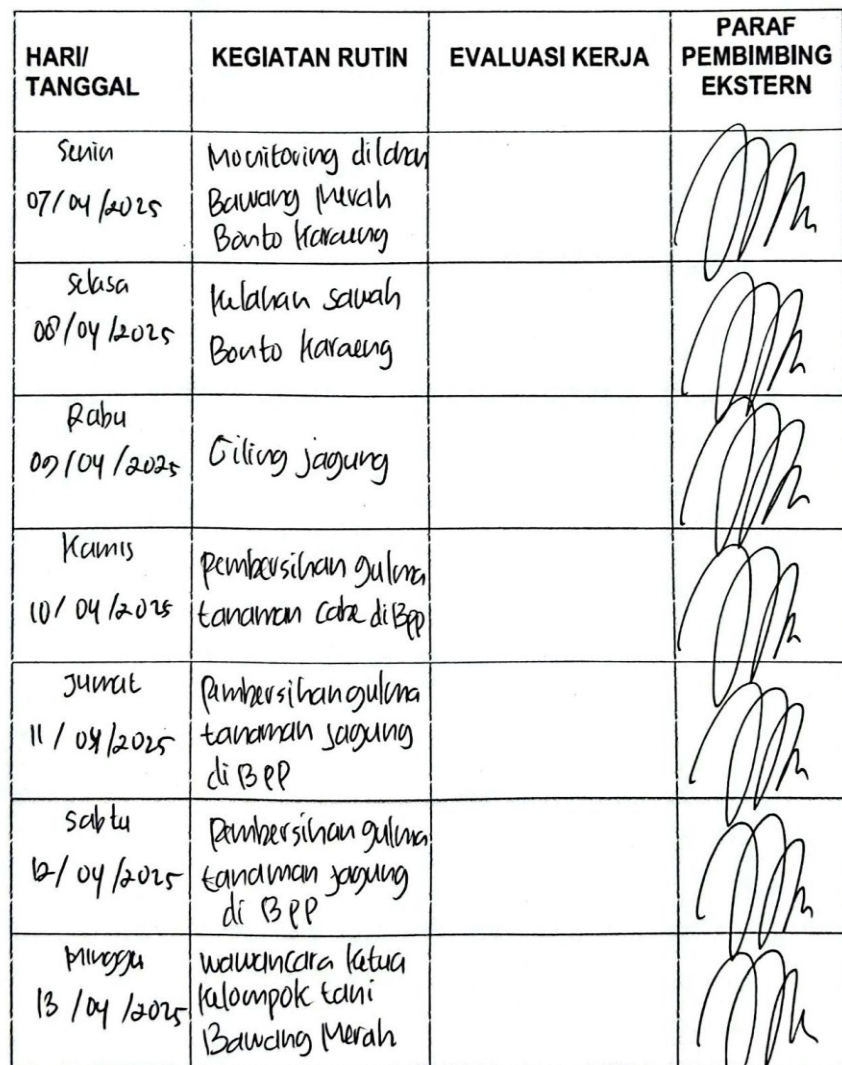 HARI/
TANGGAL
KEGIATAN RUTIN
EVALUASI KERJA
PARAF
PEMBIMBING
EKSTERN
Senin
07/04/2025
Monitoring dilahan
Bawang Merah
Bonto Karaeng
Selasa
08/04/2025
Kelahan sawah
Bonto Karaeng
Rabu
09/04/2025
Giling jagung
Kamis
10/04/2025
pembersihan gulma
tanaman cabe di Bpp
Jumat
11/04/2025
Pembersihan gulma
tanaman jagung
di BPP
Sabtu
12/04/2025
Pembersihan gulma
tanaman jagung
di BPP
Minggu
13/04/2025
wawancara ketua
kelompok tani
Bawang Merah